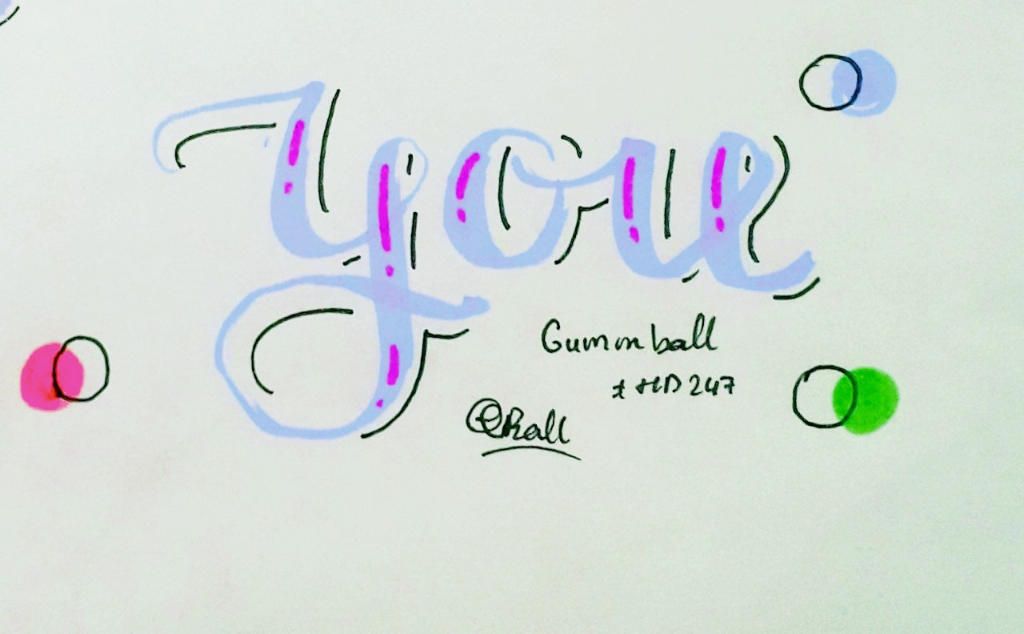 you
Gummball
HD247
@Rall